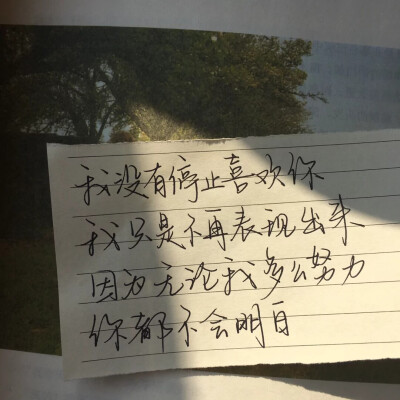 我没有停止喜欢你
我只是不再表现出来
因为无论我多么努力
你都不会明白